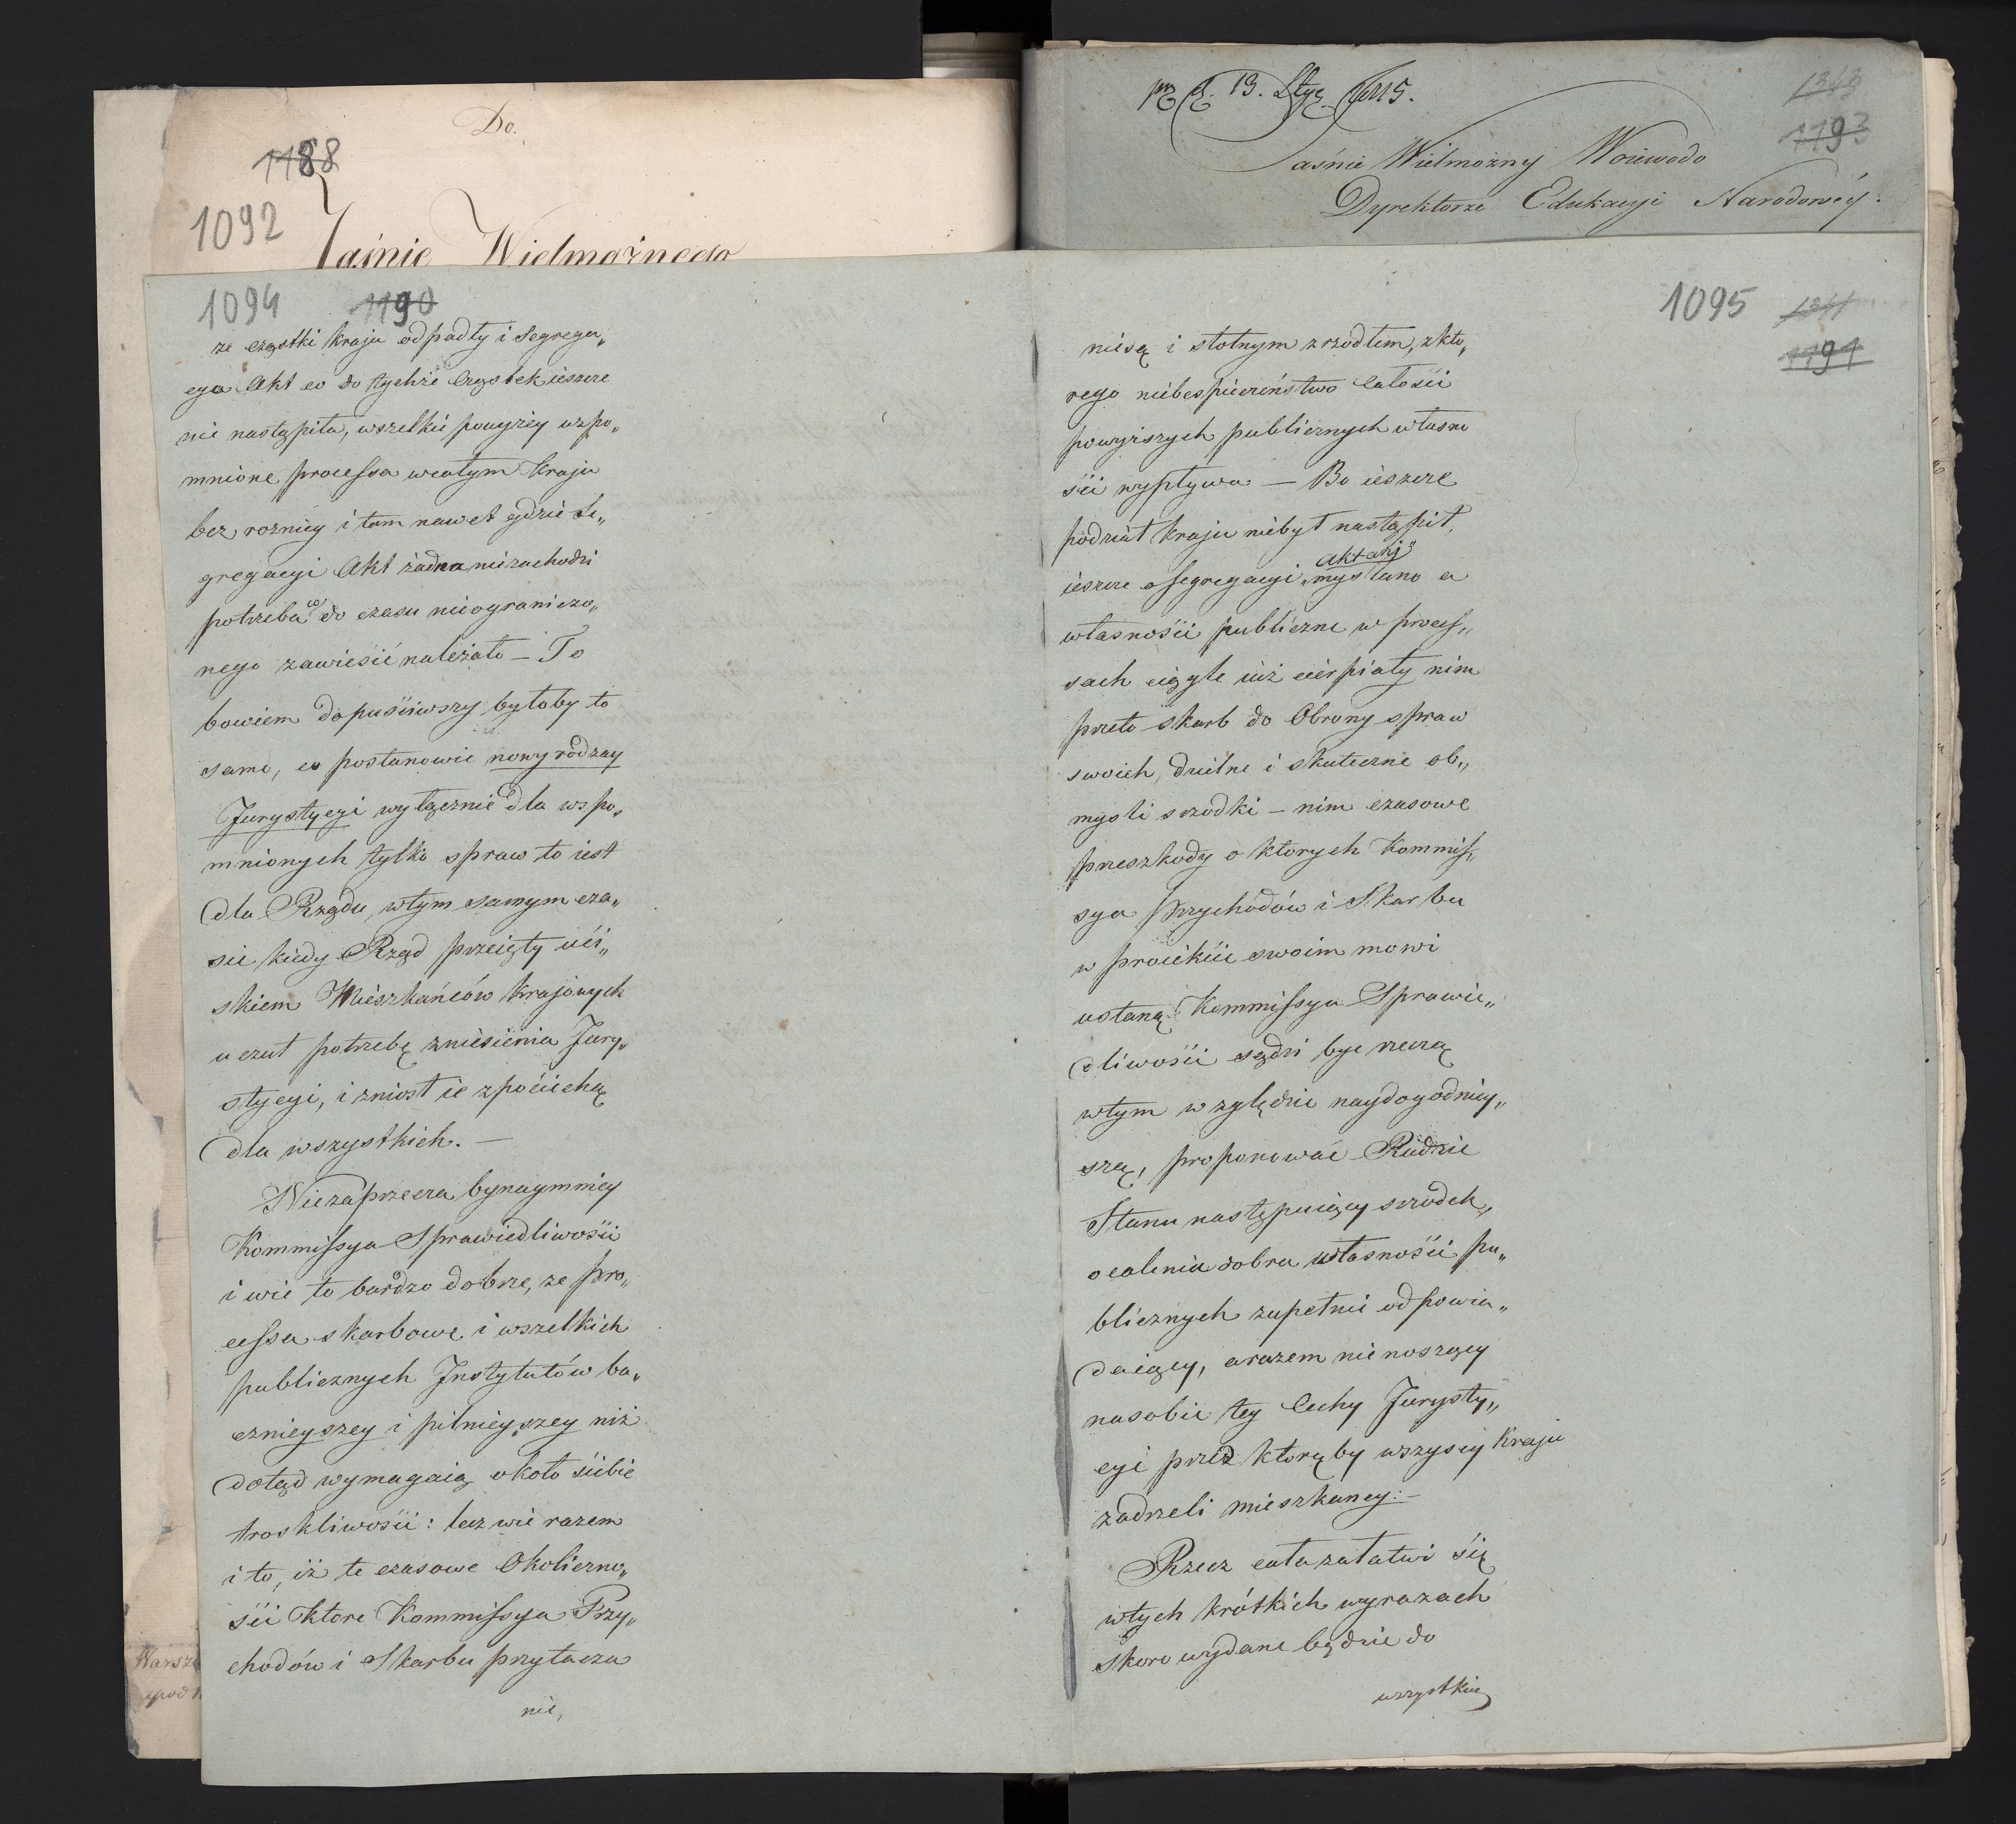 Do.
1188
1092
Jaśnie Wielmożnego
13. Stycz 1815.
1193
Jaśnie Wielmożny Woiewodo
Dyrektorze Edukacyi Narodowéy.
1094 1190
ze cząstki kraju odpadły i Segrega„
cya Akt co do tychże Cząstek ieszcze
nie nastąpiła, wszelkie powyżey wspo„
mnione processa wcałym kraju
bez rożnicy i tam nawet gdzie Se„
gregacyi Akt żadna niezachodzi
potrzeba co do czasu nieograniczo„
nego zawiesić należało – To
bowiem dopuściwszy byłoby to
samo, co postanowić nowy rodzay
Jurysdycyi wyłącznie dla wspo„
mnionych tylko spraw to iest
dla Rządu wtym samym cza„
sie kiedy Rząd przeięty uci„
skiem Mieszkańców krajowych
uczuł potrzebę zniesienia Jury„
stycyi, i zniosł ie zpociechą
dla wszystkich. –
Niezaprzecza bynaymniey
Kommissya Sprawiedliwości
i wie to bardzo dobrze, ze pro„
cessa skarbowe i wszelkich
publicznych Jnstytutów ba„
cznieyszey i pilnieyszey niż
dotąd wymagaią około siebie
troskliwości: lecz wie razem
i to, iż te czasowe Okoliczno„
ści ktore Kommissya Przy„
chodów i Skarbu przytacza
nie,
1095
1191
niesą i stotnym zrzodłem, zkto„
rego niebespieczeństwo Całości
powyższych publicznych własno
ści wypływa – Bo ieszcze
podział kraju niebył nastąpił,
aktanj
ieszcze o segregacyi „myslano a
własności publiczne w proces„
sach ciągle iuż cierpiały nim
przeto skarb do Obrony spraw
swoich, dzielne i skuteczne ob„
mysli srzodki – nim czasowe
przeszkody o ktorych Kommis„
sya Przychodów i Skarbu
w proiekcie swoim mowi
ustaną Kommissya Sprawie„
dliwości sądzi byc rzeczą
wtym względzie naydogodniey„
szą, proponować Radzie
Stanu następuiący srzodek,
ocalenia dobra własności pu„
blicznych zupełnie odpowia„
daiący, arazem nie noszący
nasobie tey Cechy Jurysty„
cyi przez ktorąby wszyscy kraju
zadrzeli mieszkancy: –
Rzecz cała załatwi się
wtych krótkich wyrazach
skoro wydane będzie do
wszystkich
Warsz